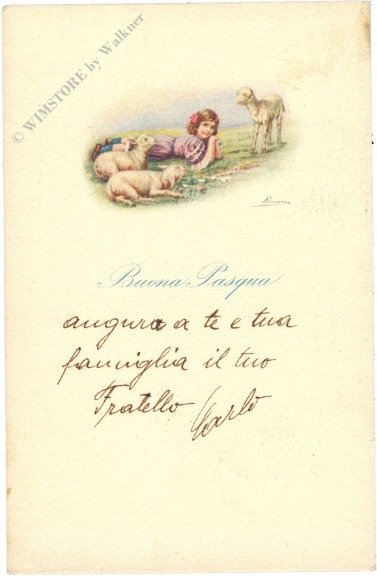 © WIMSTORE by Walkner
Buona Pasqua
augura a te e tua
famiglia il tuo
Fratello Carlo